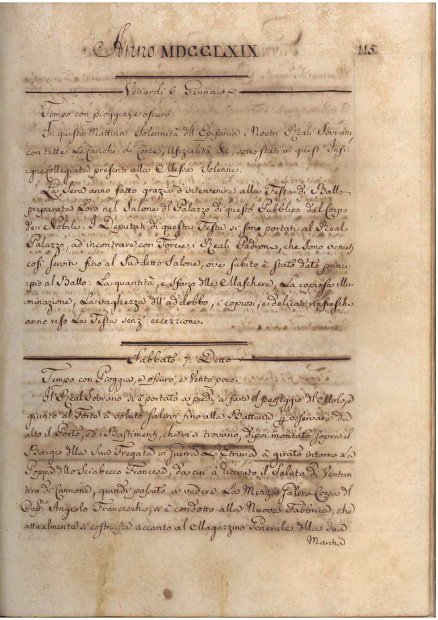 Anno MDCCLXIX
115
Venardi 6. Gennaio
Tempo con pioggia, e oscuro
In questa Mattina Solennità dell' Epifania i Nostri Reali Sovrani
con tutte Le Cariche di Corte, Ufizialità &c, sono stati in quest' Insi-
gne Collegiata presenti alla Messa Solenne.
La Sera anno fatto grazia d'intervenire alla Festa di Ballo
preparata Loro nel Salone del Palazzo di questo Pubblico dal Corpo
de Nobili. I Deputati di questa Festa si sono portati al Real
Palazzo, ad incontrare con Torcie i Reali Padroni, che sono venuti
così serviti fino al Suddetto Salone, ove subito è stato dato princi-
pio al Ballo: La quantità, e sforzo delle Maschere, La copiosa illu-
minazione, La vaghezza dell' addobbo, i copiosi, e delicati rinfreschi
anno reso La Festa senz' eccezzione.
Sabbato 7. Detto
Tempo con Pioggia, e oscuro, e Vento poco.
Il Real Sovrano si è portato a piedi, a fare il passeggio del Molo, e
giunto al Forte à voluto salirvi fino alla Batteria p osservare da
alto il Porto, ed i Bastimenti, che vi si trovano, dipoi montato sopra il
Bargio della Sua Fregata in Guerra L' Etruria à girato intorno La
Poppa dello Sciabecco Francese, da cui à ricevuto il Saluto di Ventun
tiro di Cannone, quindi passato a vedere La Mezza Galera Corsa del
Capno Angiolo Franceschi, si è condotto alla Nuova Fabbrica, che
attualmente si costruisce accanto al Magazzino Generale della sua
Marina